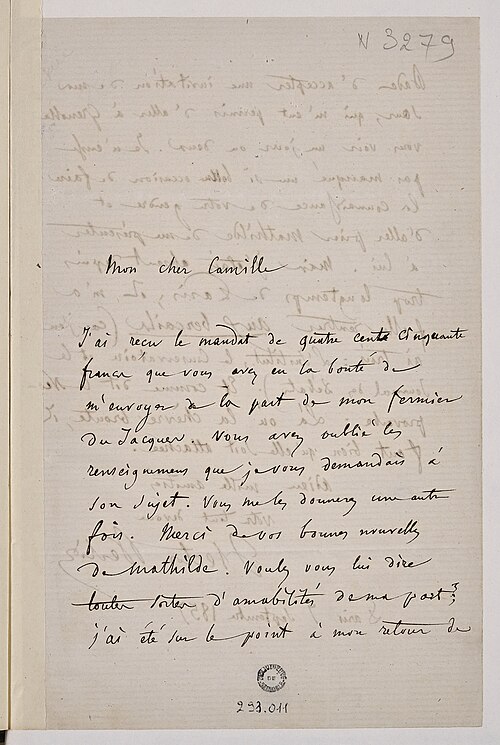 N 3279
Mon cher Camille
J'ai reçu le mandat de quatre cents cinquante
francs que vous avez eu la bonté de
m'envoyer de la part de mon fermier
Du Jacquer. Vous avez oublié les
renseignemens que je vous demandais à
son sujet. Vous me les donnerez une autre
fois. Merci de vos bonnes nouvelles
de Mathilde. Voulez vous lui dire
toutes sortes d'amabilités de ma part ;
j'ai été sur le point à mon retour de
293.011